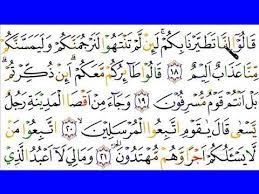 قَالُوٓا۟ إِنَّا تَطَيَّرْنَا بِكُمْ ۖ لَئِن لَّمْ تَنتَهُوا۟ لَنَرْجُمَنَّكُمْ وَلَيَمَسَّنَّكُم
مِّنَّا عَذَابٌ أَلِيمٌ ١٨ قَالُوا۟ طَـٰٓئِرُكُم مَّعَكُمْ ۚ أَئِن ذُكِّرْتُم ۚ
بَلْ أَنتُمْ قَوْمٌ مُّسْرِفُونَ ١٩ وَجَآءَ مِنْ أَقْصَا ٱلْمَدِينَةِ رَجُلٌ
يَسْعَىٰ قَالَ يَـٰقَوْمِ ٱتَّبِعُوا۟ ٱلْمُرْسَلِينَ ٢٠ ٱتَّبِعُوا۟ مَن
لَّا يَسْـَٔلُكُمْ أَجْرًا وَهُم مُّهْتَدُونَ ٢١ وَمَا لِىَ لَآ أَعْبُدُ ٱلَّذِى